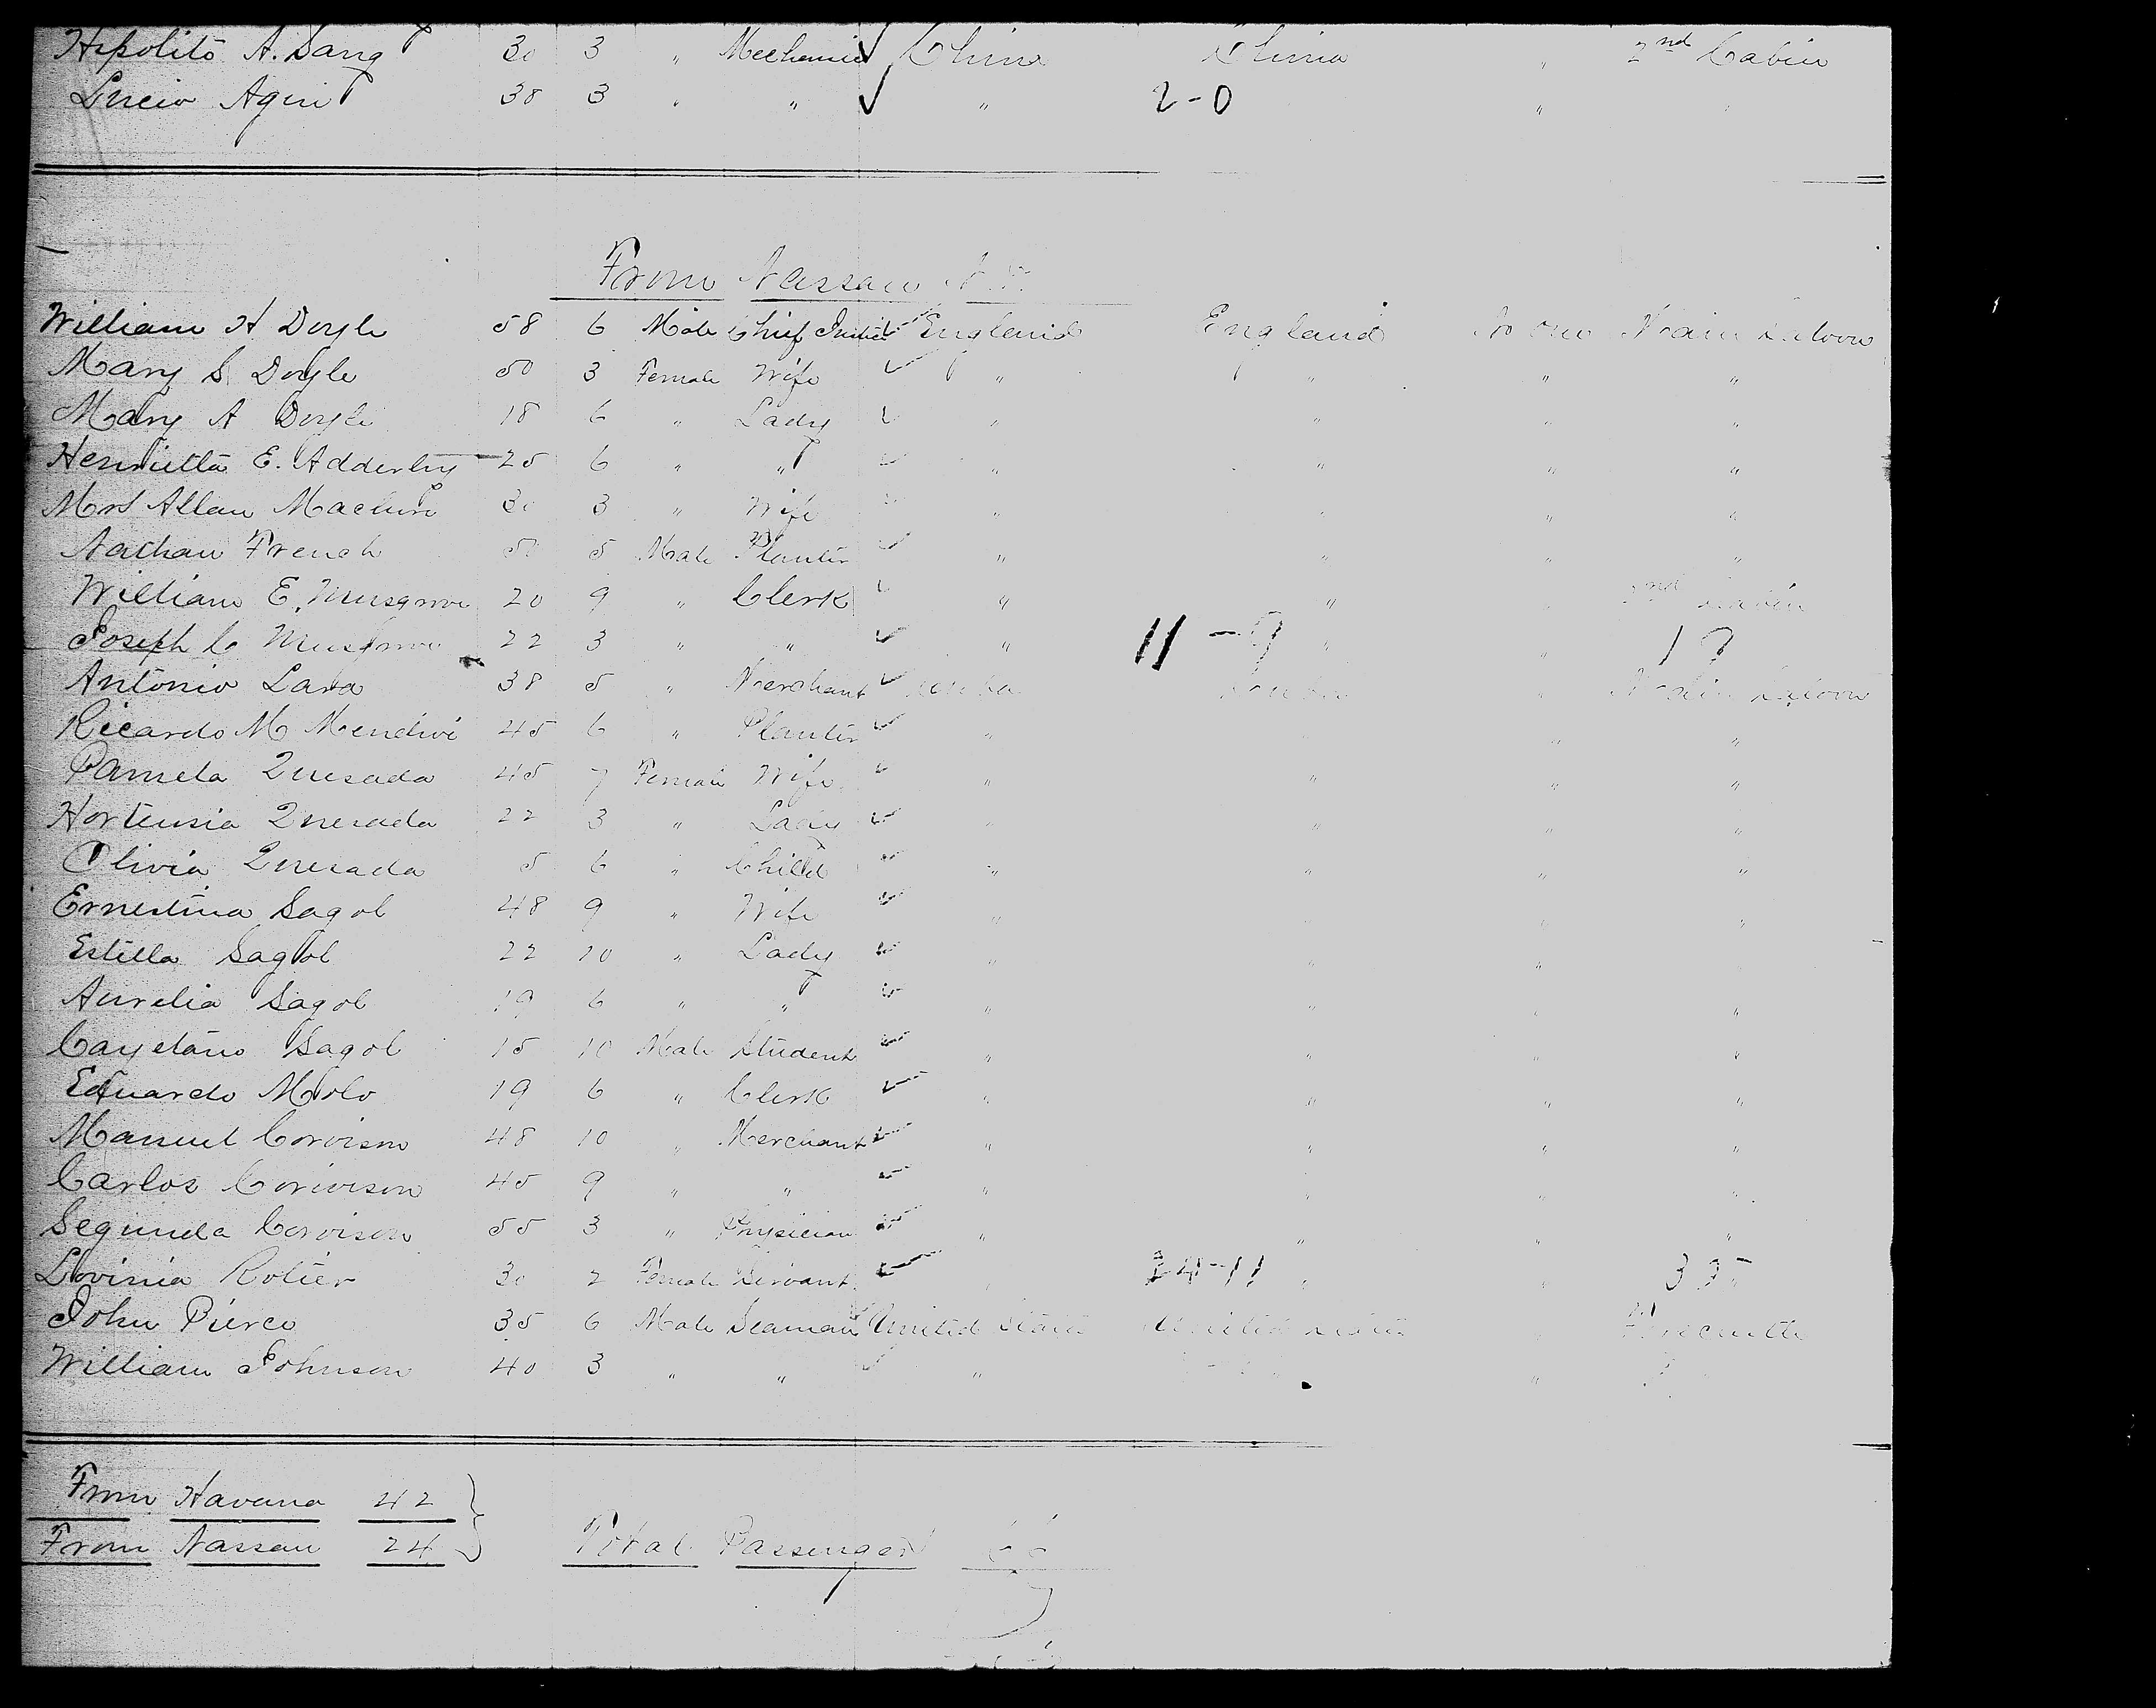 Hipolito A. Sang 30 3 " Mechanic China China " 2nd Cabin
Lucio Agui 38 3 " " " 2-0 "
From Nassau N.P.
William H Doyle 58 6 Male Chief Justice England England None Main Saloon
Mary S Doyle 50 3 Female Wife " " " "
Mary A Doyle 18 6 " Lady " " " "
Henrietta E. Adderley 25 6 " " " " " "
Mrs Allan 30 3 " Wife " " " "
Nathan French 50 5 Male Planter " " " "
William E. Musgrove 20 9 " Clerk " " " 2nd Cabin
Joseph C Musgrove 22 3 " " " 11-9 " "
Antonio Lara 38 5 " Merchant Cuba Cuba " Main Saloon
Ricardo M Mendive 45 6 " Planter " " "
Pamela Quesada 45 7 Female Wife " " " "
Hortensia Quesada 22 3 " Lady " " " "
Olivia Quesada 5 6 " Child " " " "
Ernestina Sagol 48 9 " Wife " " " "
Estilla Sagol 22 10 " Lady " " "
Aurelia Sagol 19 6 " " " " " "
Cayetano Sagol 15 10 Male Student " " " "
Eduardo Molo 19 6 " Clerk " " " "
Manuel Corvison 48 10 " Merchant " " " "
Carlos Corivison 45 9 " " " " " "
Segunda Corvison 55 3 " Physician " " " "
Lovinia Rotier 30 2 Female Servant " 24-11 " "
John Pierce 35 6 Male Seaman United States United States "
William Johnson 40 3 " " " " "
From Havana 42
From Nassau 24
Total Passengers 66